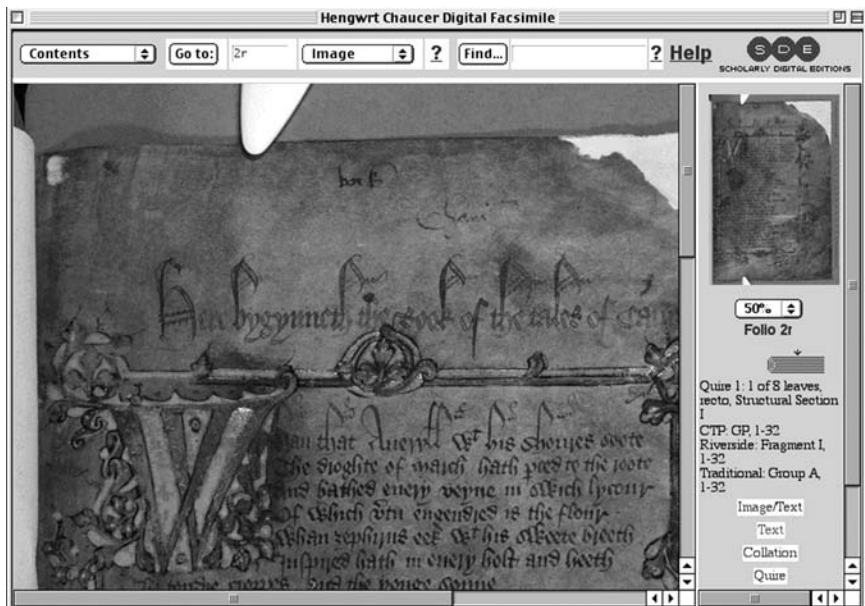 Hengwrt Chaucer Digital Facsimile
Contents Go to: 2r Image ? Find... ? Help SDE
SCHOLARLY DIGITAL EDITIONS
Here bygynneth the Book of the tales of
Whan that Aueryll wt his shoures soote
The droghte of march hath pced to the roote
And bathed euery veyne in swich lycour
Of which vtu engendred is the flour
Whan zephirus eek wt his sweete breeth
Inspired hath in euery holt and heeth
The tendre croppes and the yonge sonne
50%
Folio 2r
Quire 1: 1 of 8 leaves,
recto, Structural Section
I
CTP: GP, 1-32
Riverside: Fragment I,
1-32
Traditional: Group A,
1-32
Image/Text
Text
Collation
Quire